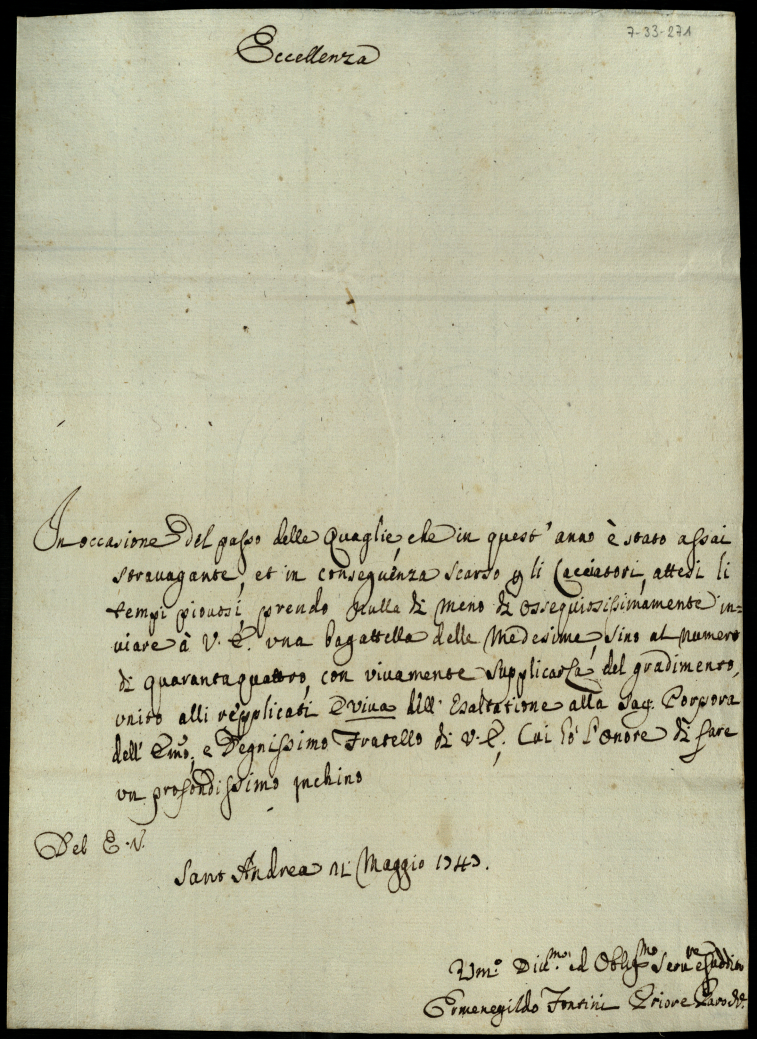 7-33-271
Eccellenza
In occasione del passo delle Quaglie, che in quest' anno è stato assai
stravagante, et in conseguenza scarso p li Cacciatori, attesi li
tempi piovosi, prendo nulla di meno di ossequiosissimamente in=
viare à V. E. una bagattella delle Medesime, sino al numero
di quarantaquattro, con vivamente supplicarla del gradimento,
unito alli replicati Eviva dell' Esaltatione alla Sag. Porpora
dell' Emo, e Degnissimo Fratello di V. E. Cui hò l'onore di fare
un profondissimo inchino
Del E. V.
Sant Andrea 21 Maggio 1743.
Umo Divmo ed Obligmo Serve e Suddito
Ermenegildo Fontini Priore